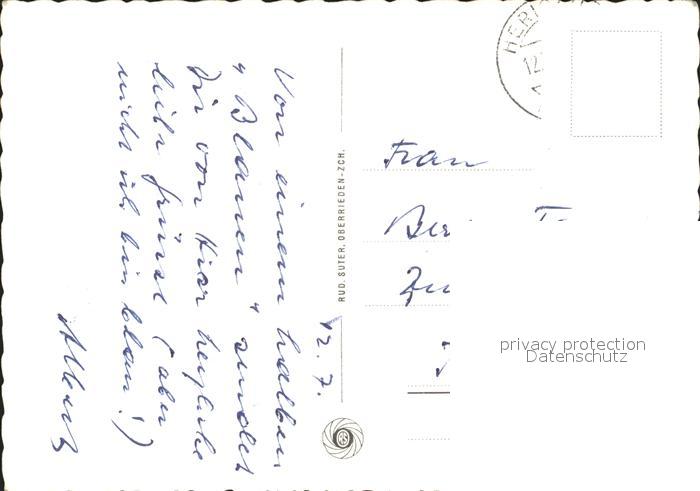 12. 7.
Von einem halben
"Blauen" sendet
Dir von Hier herzliche
liebe Grüsse (aber
nicht ich bin blau!)
Albert
RUD. SUTER, OBERRIEDEN-ZCH.
HERI
12
Frau
Ber
Zu
privacy protection
Datenschutz